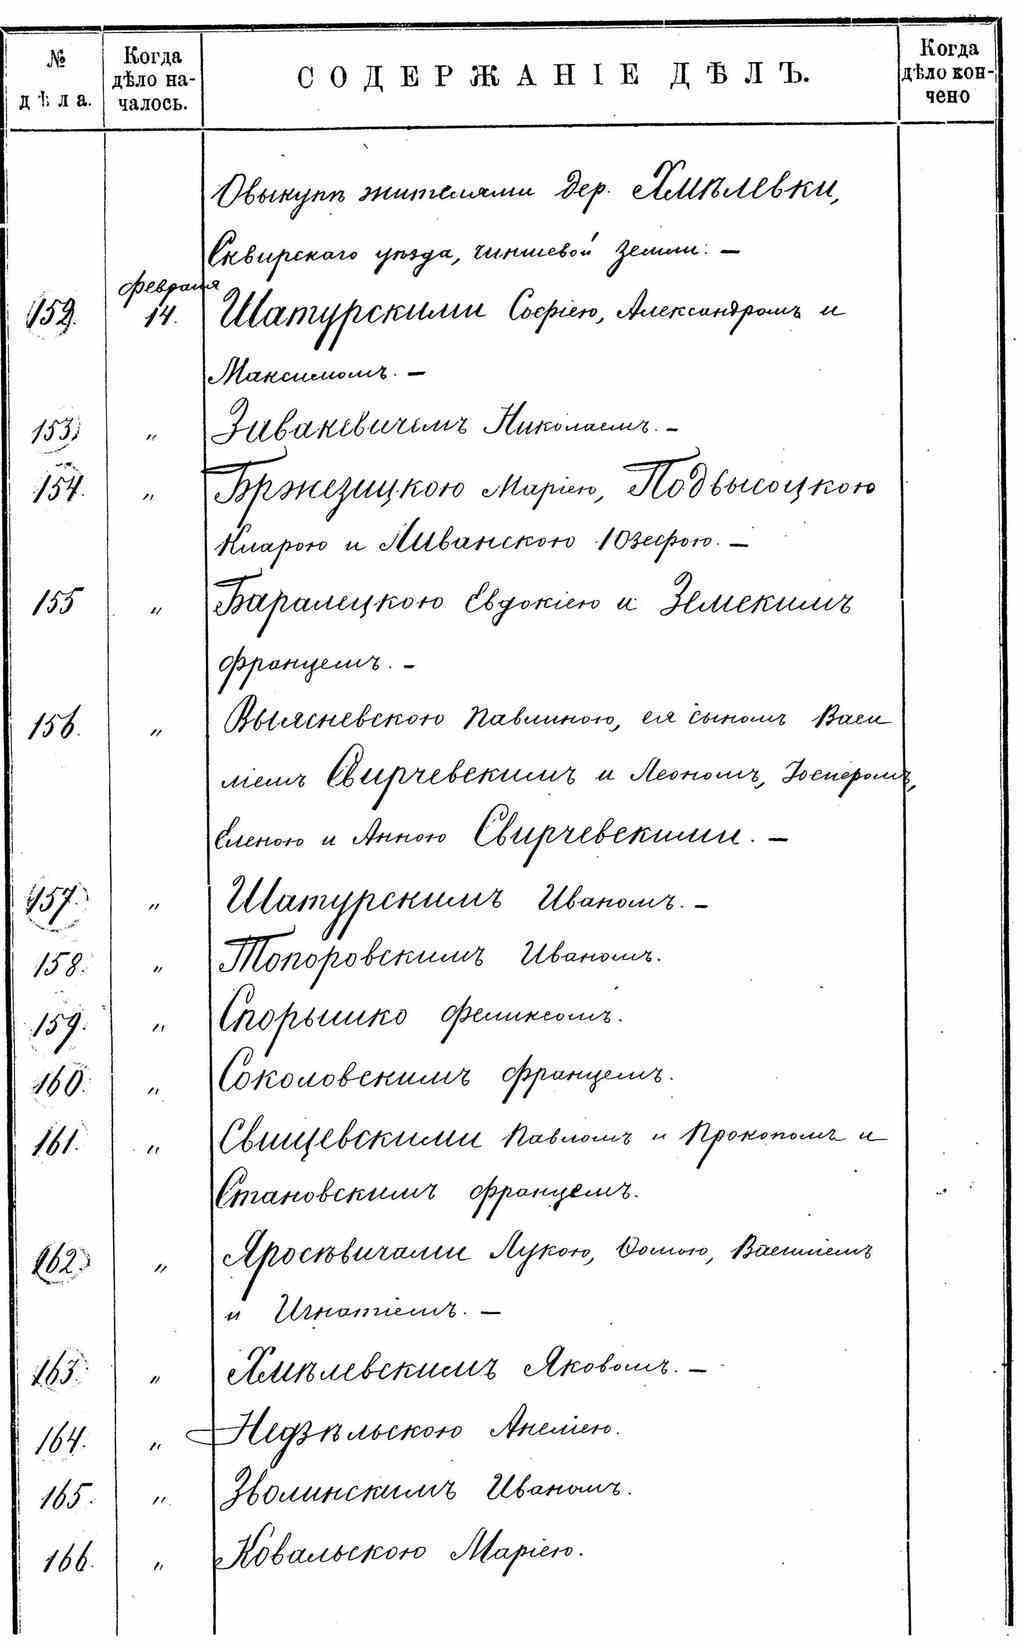 № дѣла.
Когда дѣло на-чалось.
СОДЕРЖАНІЕ ДѢЛЪ.
Когда дѣло кон-чено
О выкупѣ жителями дер. Хмѣлевки,
Сквирскаго уѣзда, чиншевой земли: —
февраля
152. 14. Шатурскими Софіею, Александромъ и
Максимомъ. —
153. „ Зивакевичемъ Николаемъ. —
154. „ Бржезицкою Маріею, Подвысоцкою
Кларою и Ливанскою Юзефою. —
155 „ Баралецкою Евдокіею и Земскимъ
Францемъ. —
156. „ Вылясневскою Павлиною, ея сыномъ Васи
ліемъ Свирчевскимъ и Леономъ,
Еленою и Анною Свирчевскими. —
157. „ Шатурскимъ Иваномъ. —
158. „ Топоровскимъ Иваномъ.
159. „ Спорышко Феликсомъ.
160. „ Соколовскимъ Францемъ.
161. „ Свищевскими Павломъ и Прокопомъ и
Становскимъ Францемъ.
162. „ Яросѣвичами Лукою, Ѳомою, Василіемъ
и Игнатіемъ. —
163. „ Хмѣлевскимъ Яковомъ. —
164. „ Недзѣльскою Анеліею.
165. „ Зволинскимъ Иваномъ.
166. „ Ковальскою Маріею.